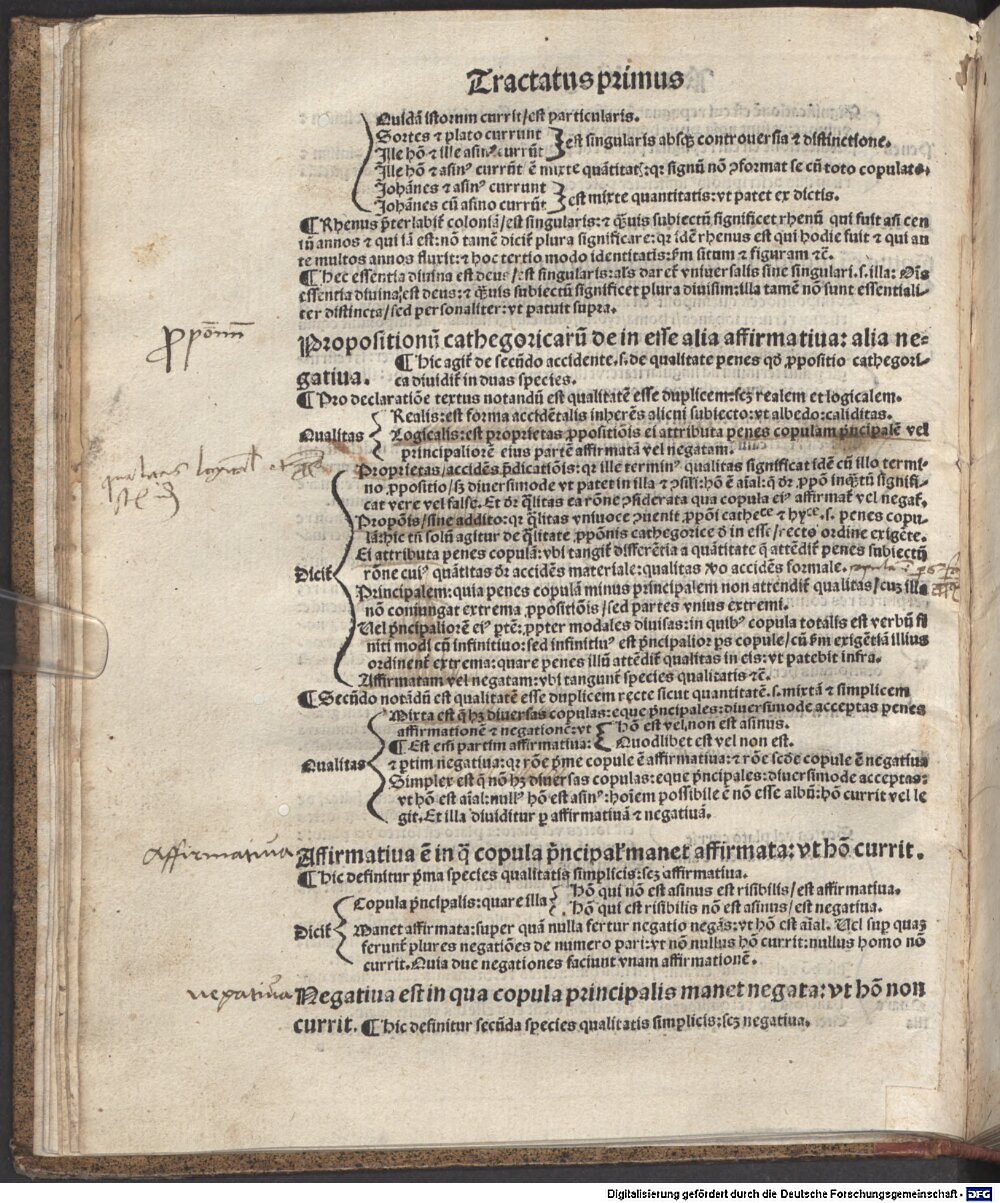 Tractatus primus
Quidã istorum currit/est particularis.
Sortes ⁊ plato currunt
Ille hõ ⁊ ille asinꝰ currũt
est singularis absqꝫ controuersia ⁊ distinctione.
Ille hõ ⁊ asinꝰ currũt ẽ mixte quãtitatꝭ: qr signũ nõ ꝯformat se cũ toto copulato.
Johãnes ⁊ asinꝰ currunt
Johãnes cũ asino currũt
est mixte quantitatis: vt patet ex dictis.
¶ Rhenus p̃terlabit̃ coloniã/est singularis: ⁊ q̃uis subiectũ significet rhenũ qui fuit añ cen
tũ annos ⁊ qui iã est: nõ tamẽ dicit̃ plura significare: qr idẽ rhenus est qui hodie fuit ⁊ qui an
te multos annos fluxit: ⁊ hoc tertio modo identitatis: ẜm situm ⁊ figuram ⁊c̃.
¶ Hec essentia diuina est deus/est singularis: als daret̃ vniuersalis sine singulari. s. illa: Oĩs
essentia diuina est deus: ⁊ q̃uis subiectũ significet plura diuisim: illa tamẽ nõ sunt essentiali-
ter distincta/sed personaliter: vt patuit supra.
Propositionũ cathegoricarũ de in esse alia affirmatiua: alia ne-
gatiua.
¶ Hic agit̃ de secũdo accidente. s. de qualitate penes qd̃ ꝓpositio cathegori-
ca diuidit̃ in duas species.
¶ Pro declaratiõe textus notandũ est qualitatẽ esse duplicem: scꝫ realem et logicalem.
Qualitas
Realis: est forma accidẽtalis inherẽs alicui subiecto: vt albedo: caliditas.
Logicalis: est proprietas ꝓpositiõis ei attributa penes copulam p̃ncipalẽ vel
principaliorẽ eius partẽ affirmatã vel negatam.
Dicit̃
Proprietas/accidẽs p̃dicatiõis: qr ille terminꝰ qualitas significat idẽ cũ illo termi-
no ꝓpositio/sꝫ diuersimode vt patet in illa ⁊ ꝯsili: hõ ẽ aĩal: q̃ dr̃ ꝓpõ inq̃tũ signifi-
cat vere vel false. Et dr̃ q̃litas ea rõne ꝯsiderata qua copula eiꝰ affirmat̃ vel negat̃.
Propõis/sine addito: qr q̃litas vniuoce ꝯuenit ꝓpõi cathece ⁊ hyce. s. penes copu-
lã: hic tñ solũ agitur de q̃litate ꝓpõnis cathegorice d̃ in esse/recto ordine exigẽte.
Ei attributa penes copulã: vbi tangit̃ differẽtia a quãtitate q̃ attẽdit̃ penes subiectũ
rõne cuiꝰ quãtitas dr̃ accidẽs materiale: qualitas ꝟo accidẽs formale.
Principalem: quia penes copulã minus principalem non attendit̃ qualitas/cuꝫ illa
nõ coniungat extrema ꝓpositiõis/sed partes vnius extremi.
Uel p̃ncipaliorẽ eiꝰ ptẽ: ꝓpter modales diuisas: in quibꝰ copula totalis est verbũ fi
niti modi cũ infinitiuo: sed infinitiuꝰ est p̃ncipalior ps copule/cũ ẜm exigẽtiã illius
ordinent̃ extrema: quare penes illũ attẽdit̃ qualitas in eis: vt patebit infra.
Affirmatam vel negatam: vbi tangunt̃ species qualitatis ⁊c̃.
¶ Secũdo notãdũ est qualitatẽ esse duplicem recte sicut quantitatẽ. s. mixtã ⁊ simplicem
Qualitas
Mixta est q̃ hꝫ diuersas copulas: eque p̃ncipales: diuersimode acceptas penes
affirmationẽ ⁊ negationẽ: vt
Hõ est vel, non est asinus.
Quodlibet est vel non est.
¶ Est em̃ partim affirmatiua:
⁊ ptim negatiua: qr rõe p̃me copule ẽ affirmatiua: ⁊ rõe scd̃e copule ẽ negatiua
Simplex est q̃ nõ hꝫ diuersas copulas: eque p̃ncipales: diuersimode acceptas:
vt hõ est aĩal: nullꝰ hõ est asinꝰ: hoĩem possibile ẽ nõ esse albũ: hõ currit vel le
git. Et illa diuiditur p affirmatiuã ⁊ negatiuã.
affirmatiua
Affirmatiua ẽ in q̃ copula p̃ncipal̃ manet affirmata: vt hõ currit.
¶ Hic definitur p̃ma species qualitatis simplicis: scꝫ affirmatiua.
Dicit̃
Copula p̃ncipalis: quare illa
Hõ qui nõ est asinus est risibilis/est affirmatiua.
Hõ qui est risibilis nõ est asinus/est negatiua.
Manet affirmata: super quã nulla fertur negatio negãs: vt hõ est aĩal. Uel sup quaꝫ
ferunt̃ plures negatiões de numero pari: vt nõ nullus hõ currit: nullus homo nõ
currit. Quia due negationes faciunt vnam affirmationẽ.
negatiua
Negatiua est in qua copula principalis manet negata: vt hõ non
currit. ¶ Hic definitur secũda species qualitatis simplicis: scꝫ negatiua.
Digitalisierung gefördert durch die Deutsche Forschungsgemeinschaft - DFG